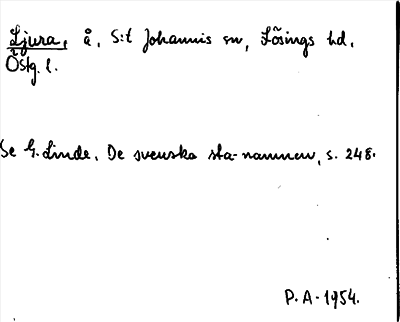 Ljura, å, S:t Johannis sn, Lösings hd,
Östg. l.
Se G. Linde, De svenska sta-namnen, s. 248.
P. A. 1954.